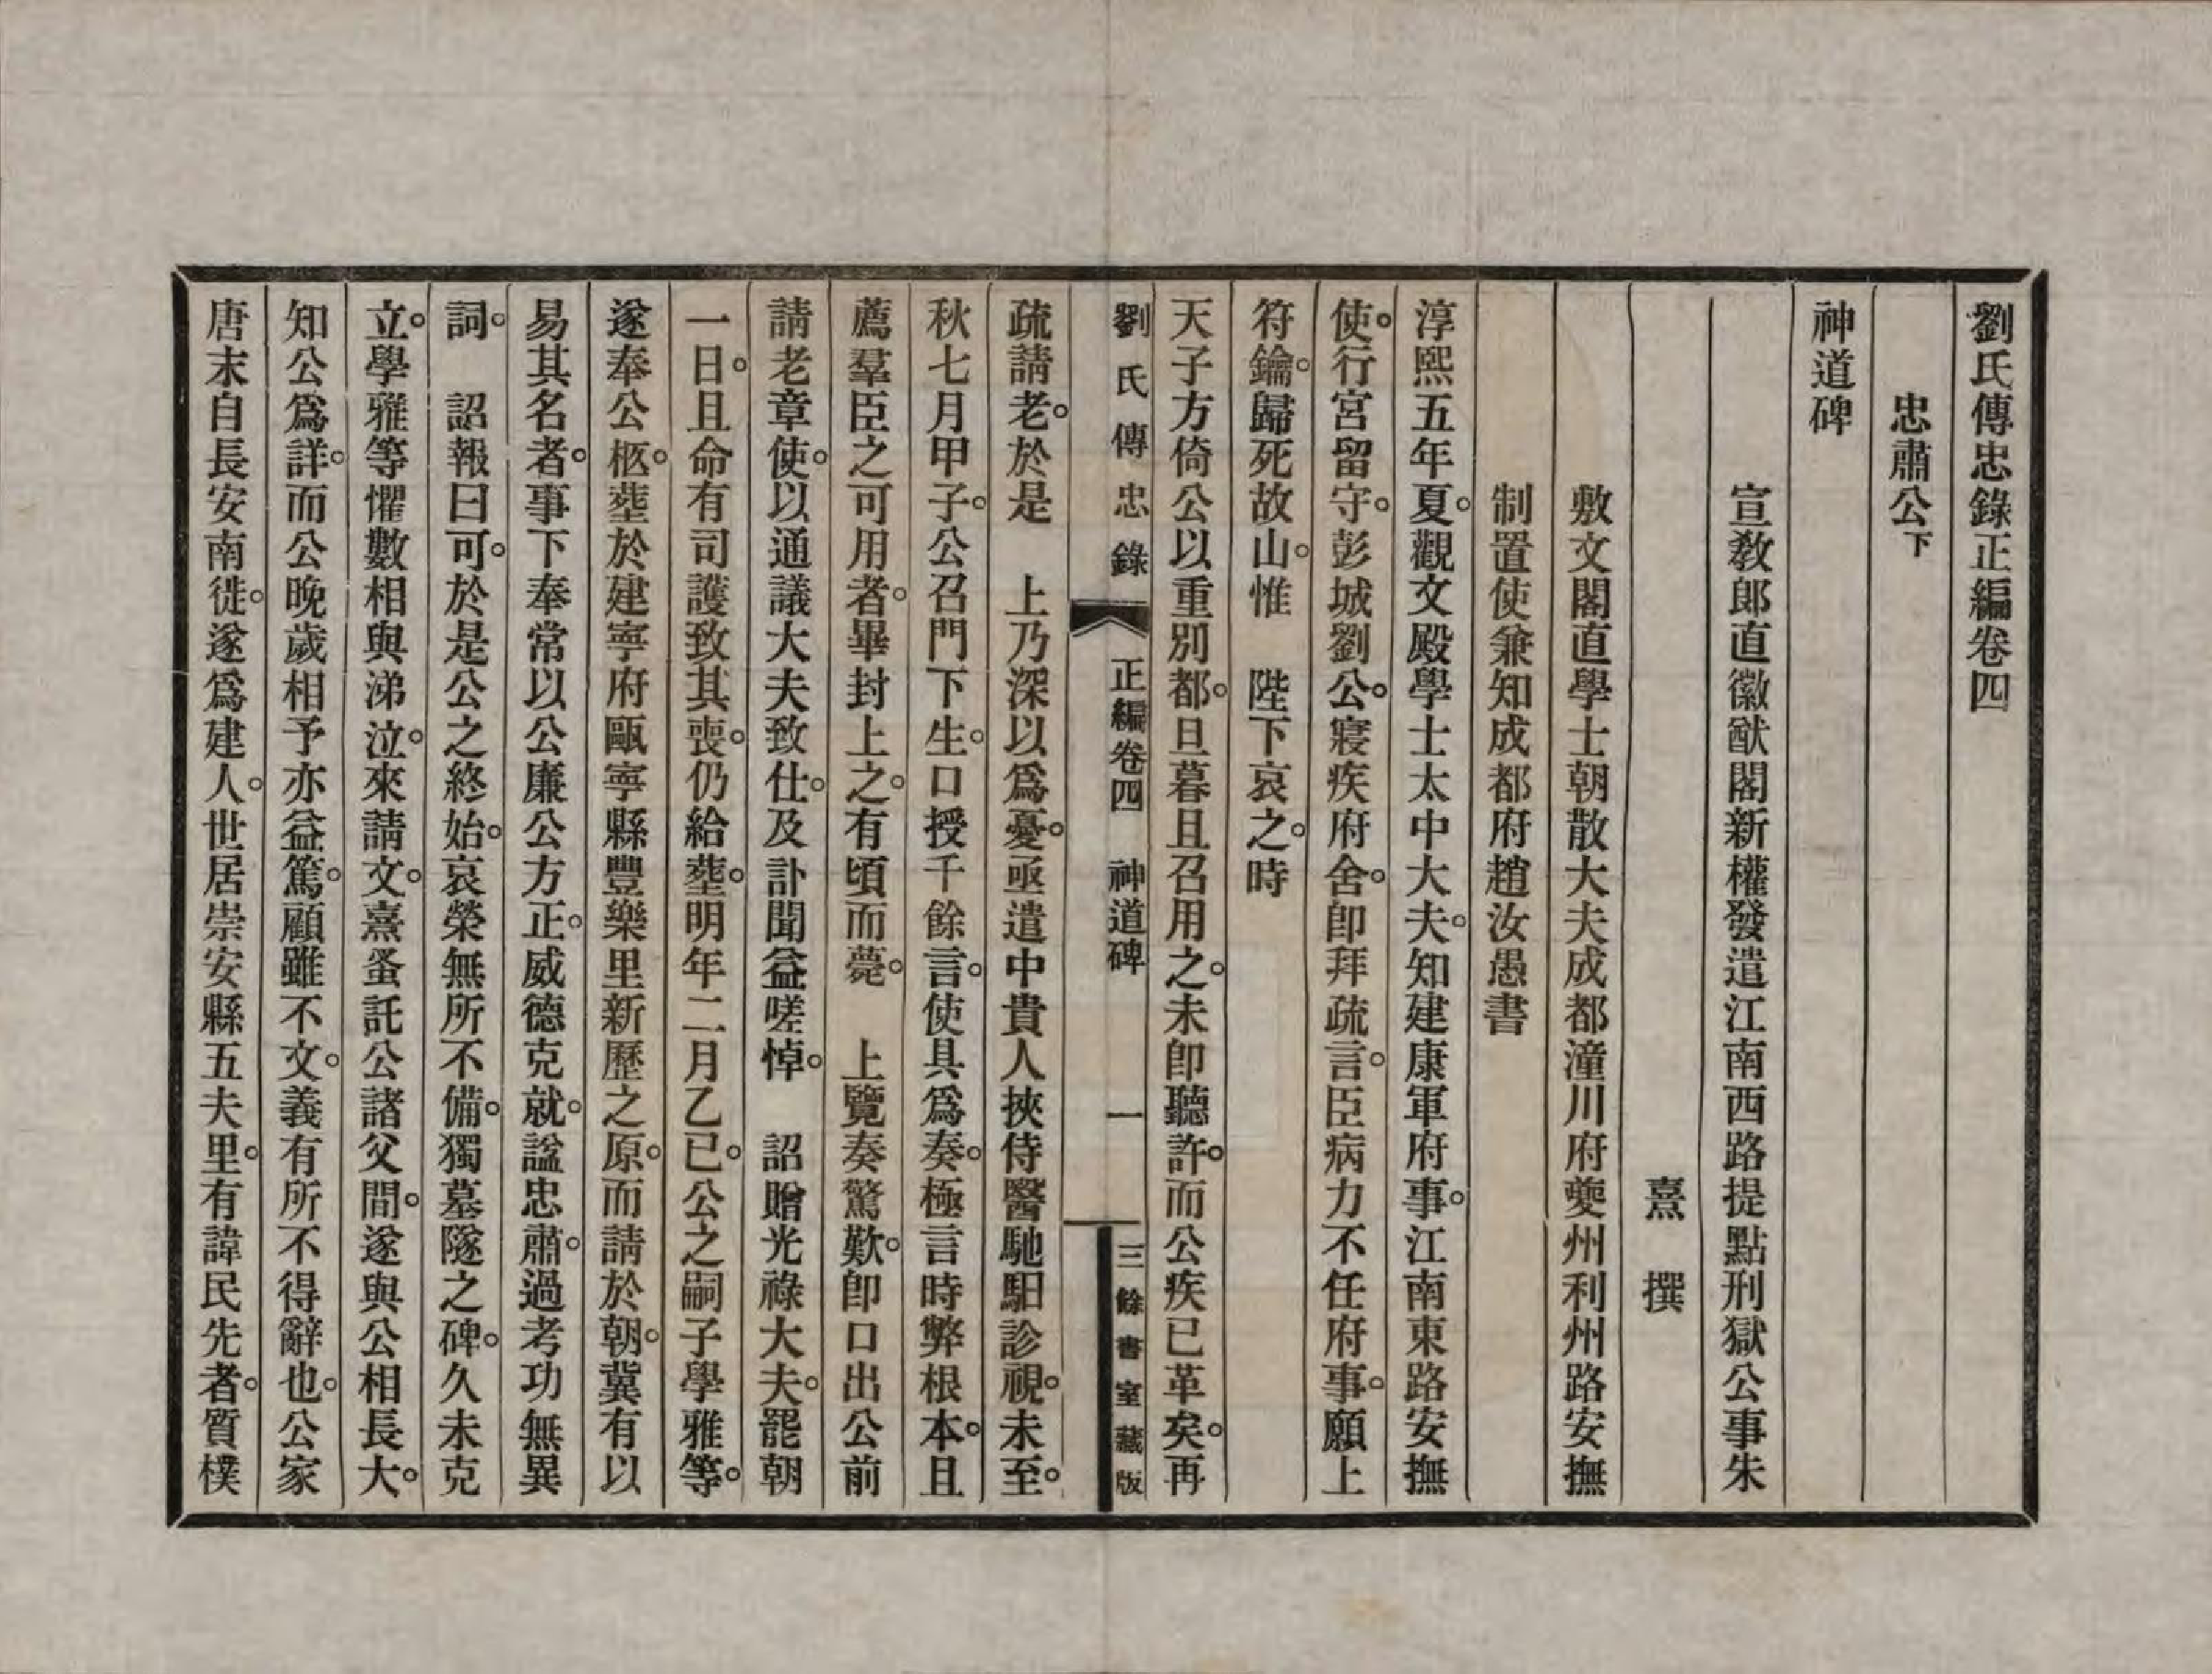 劉氏傳忠錄正編卷四
忠肅公下
神道碑
宣教郎直徽猷閣新權發遣江南西路提點刑獄公事朱
熹　撰
敷文閣直學士朝散大夫成都潼川府夔州利州路安撫
制置使兼知成都府趙汝愚書
淳熙五年夏。觀文殿學士太中大夫。知建康軍府事。江南東路安撫
使。行宮留守。彭城劉公。寢疾府舍。卽拜疏言。臣病力不任府事。願上
符鑰。歸死故山。惟　陛下哀之。時
天子方倚公以重別都。旦暮且召用之。未卽聽許。而公疾已革矣。再
劉氏傳忠錄　正編卷四　神道碑　一　三餘書室藏版
疏請老。於是　上乃深以爲憂。亟遣中貴人挾侍醫馳馹診視。未至。
秋七月甲子。公召門下生。口授千餘言。使具爲奏。極言時弊根本。且
薦羣臣之可用者。畢封上之。有頃而薨。　上覽奏驚歎。卽口出公前
請老章。使以通議大夫致仕。及訃聞益嗟悼。　詔贈光祿大夫。罷朝
一日。且命有司護致其喪。仍給葬。明年二月乙巳。公之嗣子學雅等。
遂奉公柩。葬於建寧府甌寧縣豐樂里新歷之原。而請於朝。冀有以
易其名者。事下奉常以公廉公方正。威德克就。諡忠肅。過考功無異
詞。　詔報曰可。於是公之終始。哀榮無所不備。獨墓隧之碑。久未克
立。學雅等懼數相與涕泣。來請文。熹蚤託公諸父間。遂與公相長大。
知公爲詳。而公晚歲相予亦益篤。顧雖不文。義有所不得辭也。公家
唐末自長安南徙。遂爲建人。世居崇安縣五夫里。有諱民先者。質樸